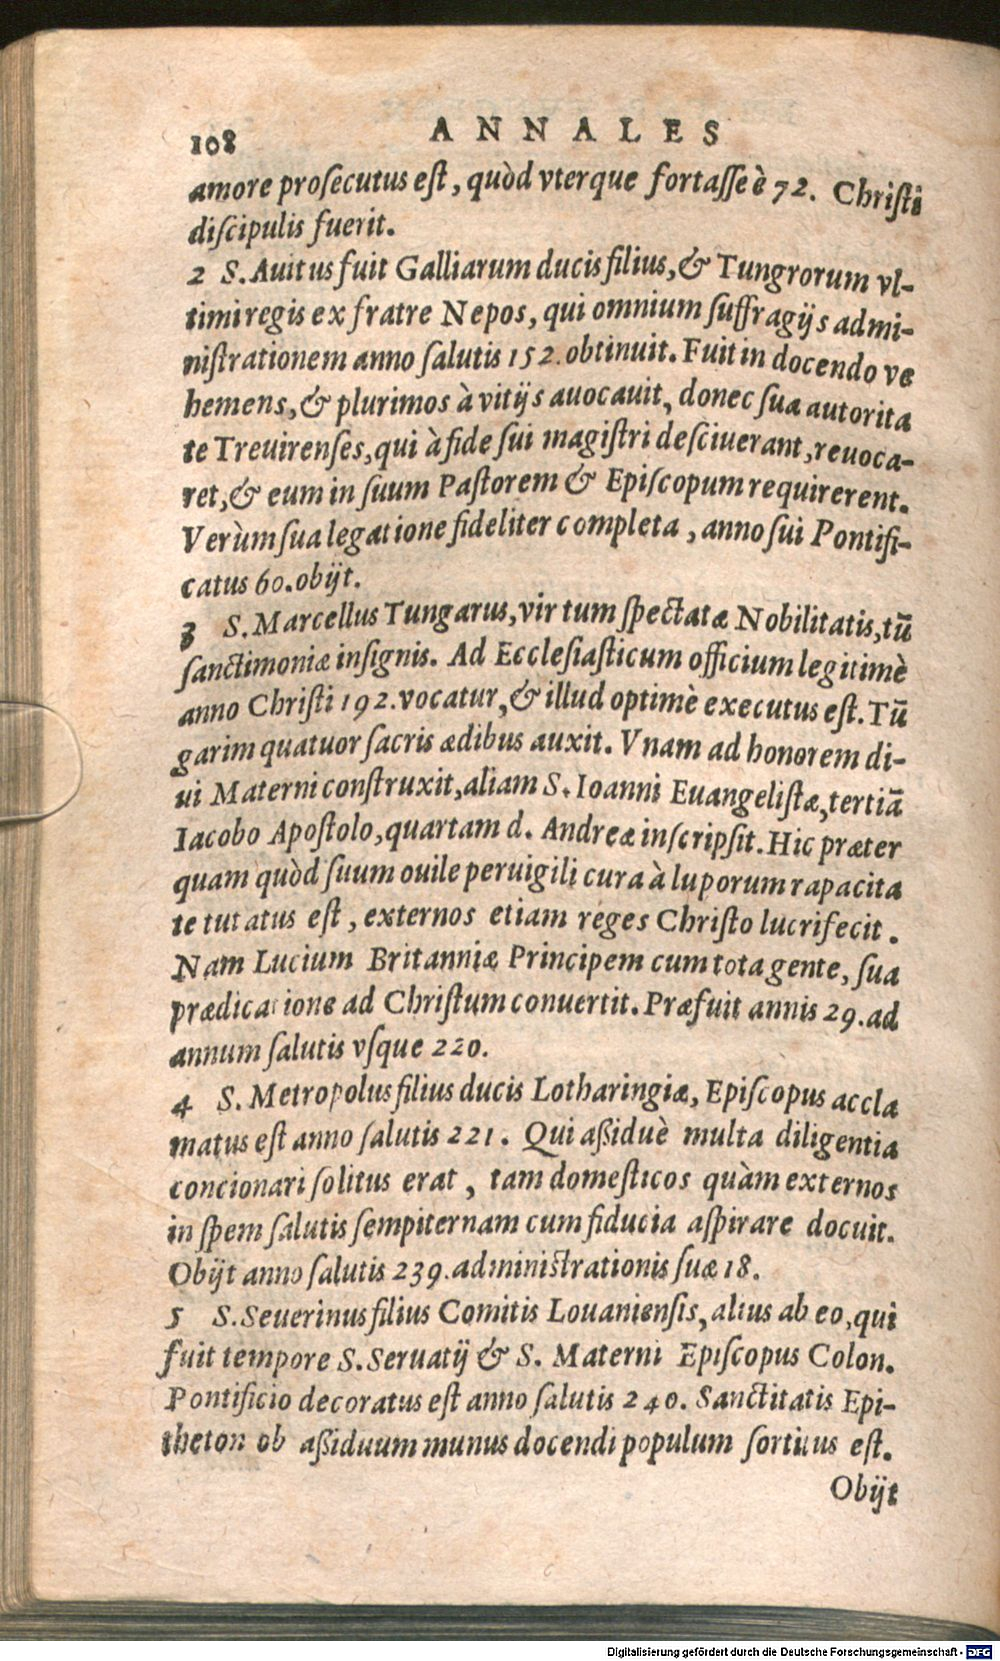 108 ANNALES
amore proſecutus eſt, quòd vterque fortaſſe è 72. Chriſti
diſcipulis fuerit.
2 S. Auitus fuit Galliarum ducis filius, & Tungrorum vl-
timi regis ex fratre Nepos, qui omnium ſuffragijs admi-
niſtrationem anno ſalutis 152. obtinuit. Fuit in docendo ve
hemens, & plurimos à vitijs auocauit, donec ſua autorita
te Treuirenſes, qui à fide ſui magiſtri deſciuerant, reuoca-
ret, & eum in ſuum Paſtorem & Epiſcopum requirerent.
Verùm ſua legatione fideliter completa, anno ſui Pontifi-
catus 60. obijt.
3 S. Marcellus Tungarus, vir tum ſpectatæ Nobilitatis, tū
ſanctimoniæ inſignis. Ad Eccleſiaſticum officium legitimè
anno Chriſti 192. vocatur, & illud optimè executus eſt. Tū
garim quatuor ſacris ædibus auxit. Vnam ad honorem di-
ui Materni conſtruxit, aliam S. Ioanni Euangeliſtæ, tertiā
Iacobo Apoſtolo, quartam d. Andreæ inſcripſit. Hic præter
quam quòd ſuum ouile peruigili cura à luporum rapacita
te tutatus eſt, externos etiam reges Chriſto lucrifecit.
Nam Lucium Britanniæ Principem cum tota gente, ſua
prædicatione ad Chriſtum conuertit. Præfuit annis 29. ad
annum ſalutis vſque 220.
4 S. Metropolus filius ducis Lotharingiæ, Epiſcopus accla
matus eſt anno ſalutis 221. Qui aßiduè multa diligentia
concionari ſolitus erat, tam domeſticos quàm externos
in ſpem ſalutis ſempiternam cum fiducia aſpirare docuit.
Obijt anno ſalutis 239. adminiſtrationis ſuæ 18.
5 S. Seuerinus filius Comitis Louanienſis, alius ab eo, qui
fuit tempore S. Seruatij & S. Materni Epiſcopus Colon.
Pontificio decoratus eſt anno ſalutis 240. Sanctitatis Epi-
theton ob aßiduum munus docendi populum ſortitus eſt.
Obijt
Digitalisierung gefördert durch die Deutsche Forschungsgemeinschaft - DFG